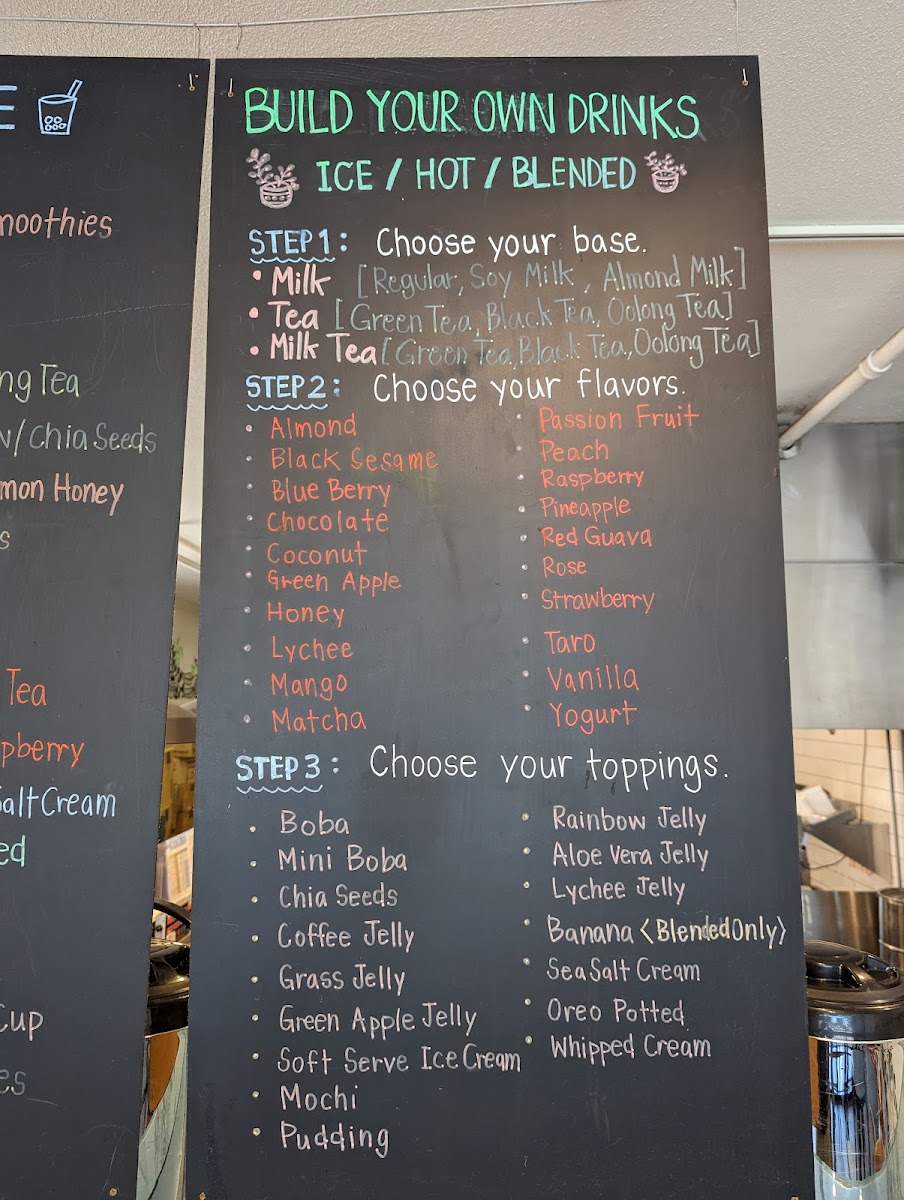 E
moothies
ng Tea
w/Chia Seeds
mon Honey
s
Tea
pberry
Salt Cream
ed
Cup
es
BUILD YOUR OWN DRINKS
ICE / HOT / BLENDED
STEP 1: Choose your base.
• Milk [Regular, Soy Milk, Almond Milk]
• Tea [Green Tea, Black Tea, Oolong Tea]
• Milk Tea [Green Tea, Black Tea, Oolong Tea]
STEP 2: Choose your flavors.
• Almond
• Black Sesame
• Blue Berry
• Chocolate
• Coconut
• Green Apple
• Honey
• Lychee
• Mango
• Matcha
• Passion Fruit
• Peach
• Raspberry
• Pineapple
• Red Guava
• Rose
• Strawberry
• Taro
• Vanilla
• Yogurt
STEP 3: Choose your toppings.
• Boba
• Mini Boba
• Chia Seeds
• Coffee Jelly
• Grass Jelly
• Green Apple Jelly
• Soft Serve Ice Cream
• Mochi
• Pudding
• Rainbow Jelly
• Aloe Vera Jelly
• Lychee Jelly
• Banana <Blended Only>
• Sea Salt Cream
• Oreo Potted
• Whipped Cream